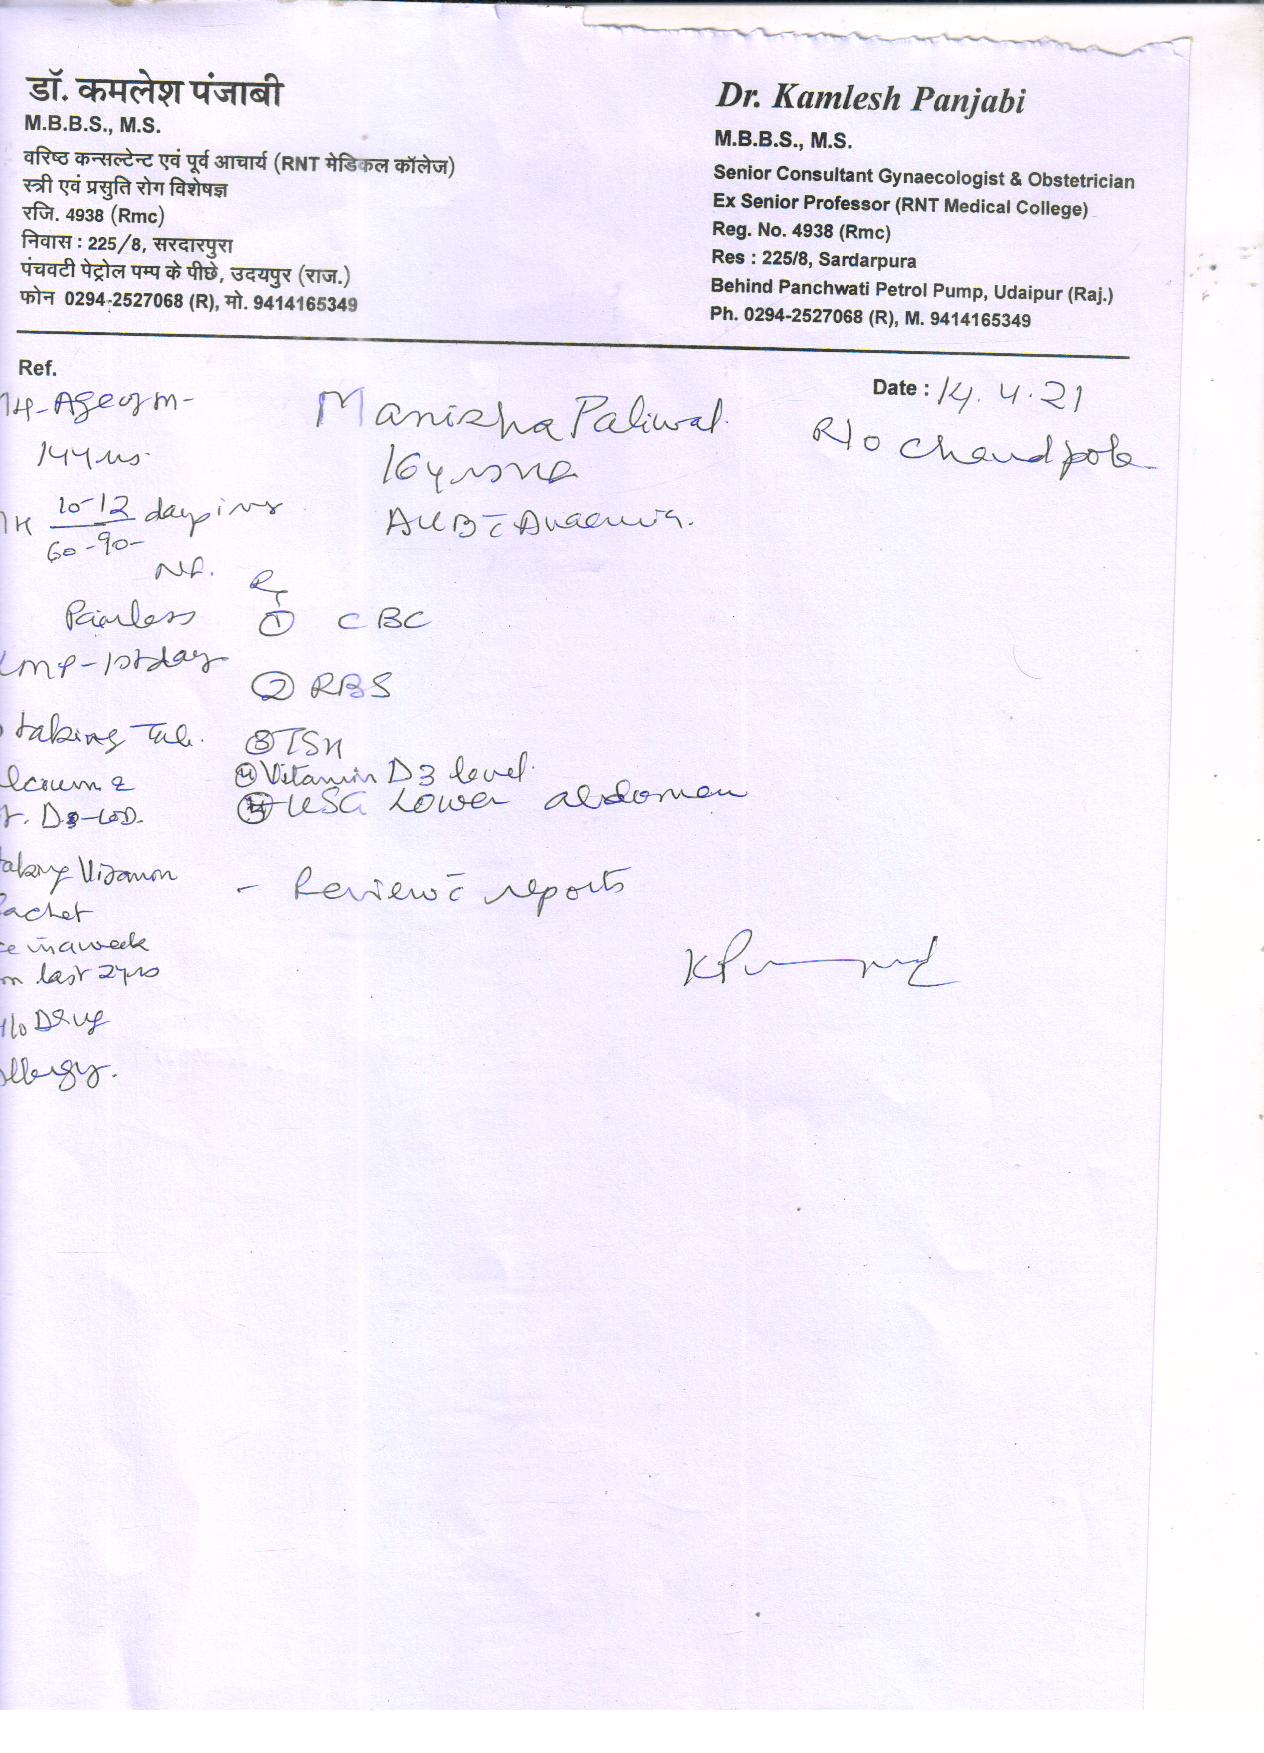 डॉ. कमलेश पंजाबी
M.B.B.S., M.S.
वरिष्ठ कन्सल्टेन्ट एवं पूर्व आचार्य (RNT मेडिकल कॉलेज)
स्त्री एवं प्रसुति रोग विशेषज्ञ
रजि. 4938 (Rmc)
निवास : 225/8, सरदारपुरा
पंचवटी पेट्रोल पम्प के पीछे, उदयपुर (राज.)
फोन 0294-2527068 (R), मो. 9414165349
Dr. Kamlesh Panjabi
M.B.B.S., M.S.
Senior Consultant Gynaecologist & Obstetrician
Ex Senior Professor (RNT Medical College)
Reg. No. 4938 (Rmc)
Res : 225/8, Sardarpura
Behind Panchwati Petrol Pump, Udaipur (Raj.)
Ph. 0294-2527068 (R), M. 9414165349
Ref.
Date : 14.4.21
Manisha Paliwal
R/o Chandpole
16yrs
AUB c̄ Anaemia.
Age of m-
14yrs.
10-12 days
60-90-
Painless
LMP-1st day
taking Tab.
D3-
taking Vitamin
in a week
last 2yrs
H/o Drug
Rx
① CBC
② RBS
③ TSH
④ Vitamin D3 level.
USG Lower abdomen
- Review c̄ reports